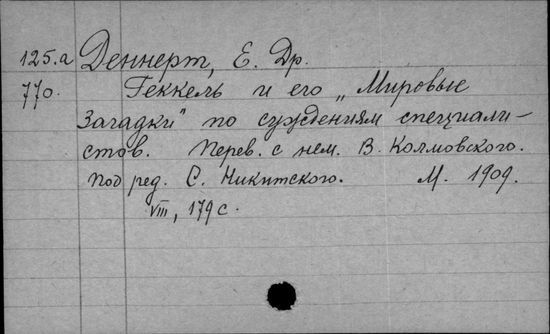 125.а Деннерт, Е. Др.
770. Геккель и его „Мировые
Загадки" по суждениям специали-
стов. Перев. с нем. В. Колмовского.
Под ред. С. Никитского. М. 1909.
VIII, 179 с.